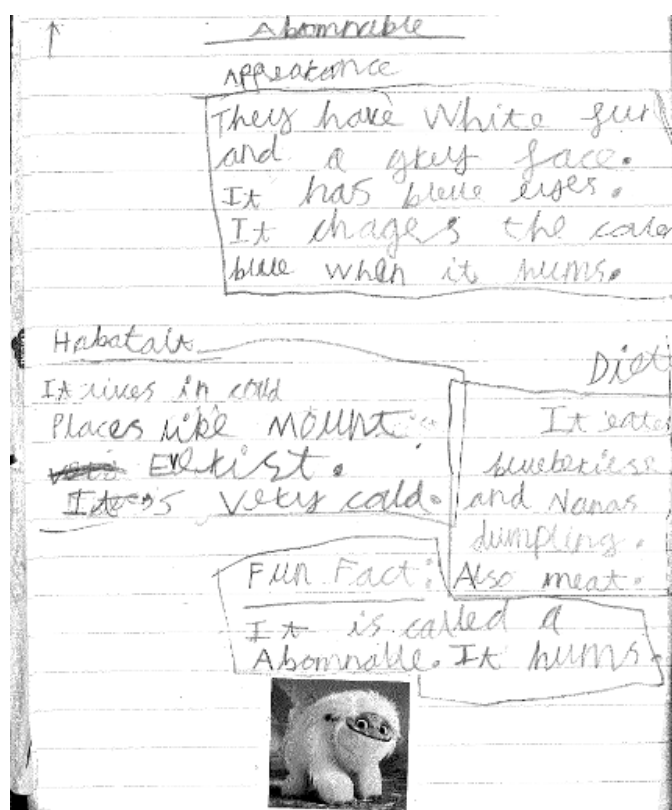 Abomnable
Appearance
They have White fur
and a grey face.
It has blue eyes.
It chages the coler
blue when it hums.
Habatait
It lives in cold
Places like MOUNT
Everist.
It is very cold.
Diet
It eates
blueberiese
and Nanas
dumpling.
Also meat.
Fun Fact:
It is called a
Abomnable. It hums.